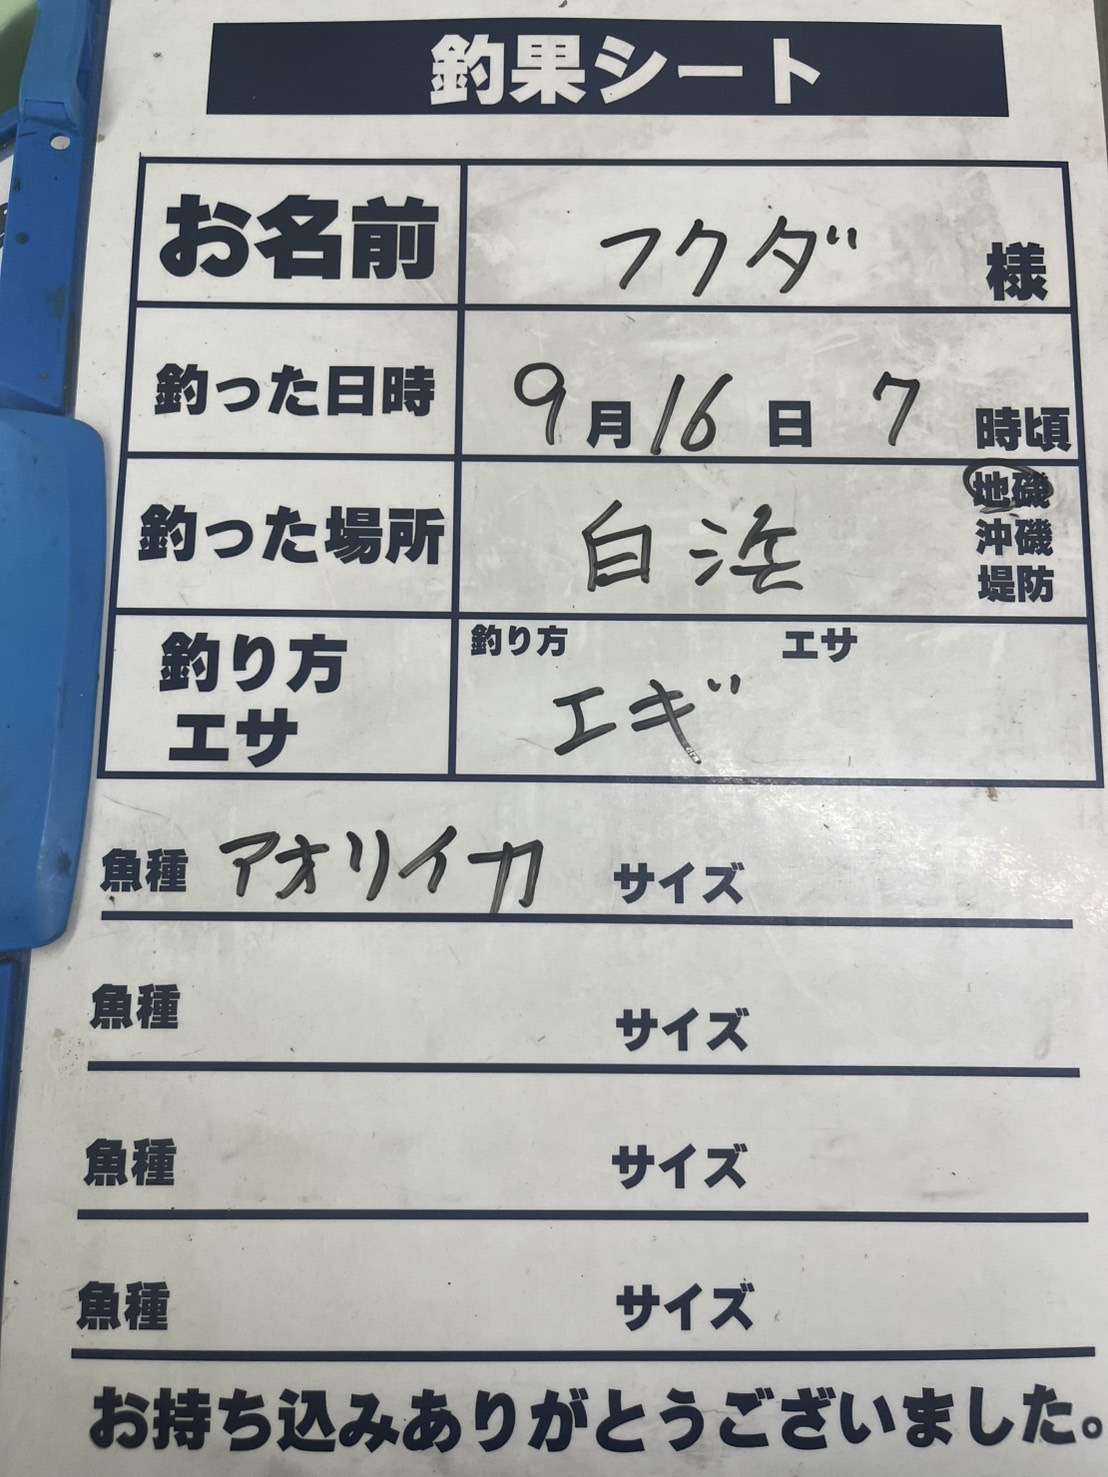 釣果シート
お名前 フクダ 様
釣った日時 9月16日 7 時頃
釣った場所 白浜 地磯
沖磯
堤防
釣り方 エサ 釣り方 エサ
エギ
魚種 アオリイカ サイズ
魚種 サイズ
魚種 サイズ
魚種 サイズ
お持ち込みありがとうございました。